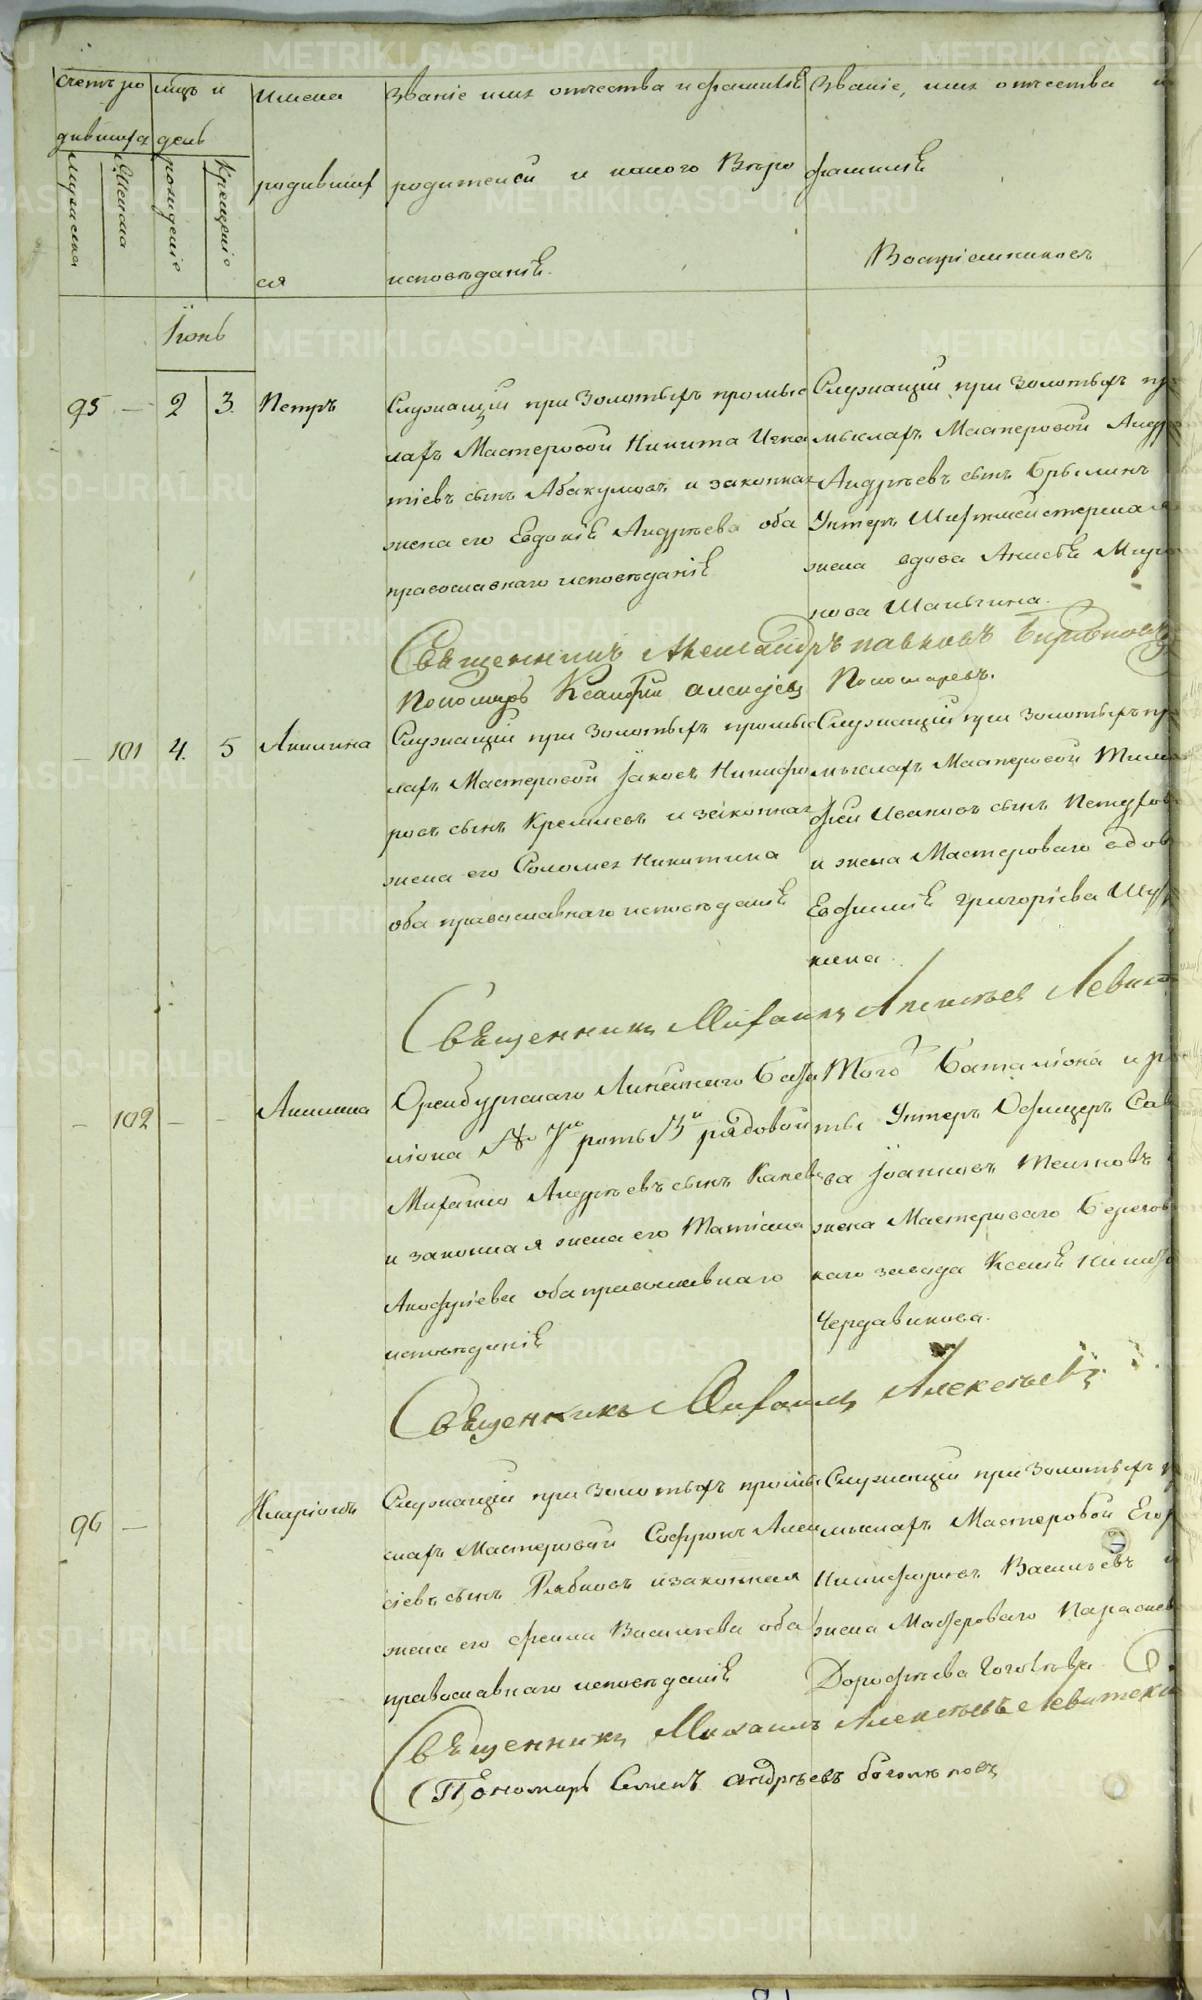 счетъ ро
дившихся
мужеска
женска
мѣсяцъ и
день
рожденія
крещенія
имена
родивших
ся
Званіе имя отчества и фамилія
родителей и какого Вѣро
исповѣданія.
Званіе, имя отчества и
фамилія
Воспріемниковъ
Іюнь
95 — 2 3. Петръ
Служащій при Золотыхъ промыс
лахъ Мастеровой Никита Игна
тіевъ сынъ Абакумовъ и законная
жена его Евдокія Андрѣева оба
православнаго исповѣданія
Служащій при Золотыхъ пр
мыслахъ Мастеровой Андр
Андрѣевъ сынъ Брылинъ
Унтеръ Шихтмейстерская
жена вдова Анисья
нова Шаньгина.
Священникъ Александръ павловъ
Пономарь Ксенофонтъ алексѣевъ Пономаревъ.
— 101 4. 5 Акилина
Служащій при Золотыхъ промыс
лахъ Мастеровой Іаковъ Никифо
ровъ сынъ Кремлевъ и законная
жена его Соломея Никитина
оба православнаго исповѣданія
Служащій при Золотыхъ пр
мыслахъ Мастеровой Тимо
фей Ивановъ сынъ Петухов
и жена Мастероваго вдов
Евфимія Григоріева
кина.
Священникъ Михаилъ Алексѣевъ Левит
— 102 — — Акилина
Оренбургскаго Линейнаго Бата
ліона № 7го роты 3й рядовой
Михаило Андрѣевъ сынъ Каневъ
и законная жена его Татіана
Анофріева оба православнаго
исповѣданія
Того Баталіона и р
ты Унтеръ Офицеръ Сав
ва Іоанновъ
жена Мастероваго Березов
каго завода Ксенія
Чердавикова.
Священникъ Михаилъ Алексѣевъ
96 — Иларіонъ
Служащій при Золотыхъ промыс
лахъ Мастеровой Софронъ Алек
сіевъ сынъ Рябковъ и законная
жена его Фекла Васильева оба
православнаго исповѣданія
Служащій при Золотыхъ п
мыслахъ Мастеровой Его
Никифоровъ Васильевъ и
жена Мастероваго Параскев
Дорофѣева
Священникъ Михаилъ Алексѣевъ Левитски
Пономарь Семенъ андрѣевъ боголѣповъ
METRIKI.GASO-URAL.RU